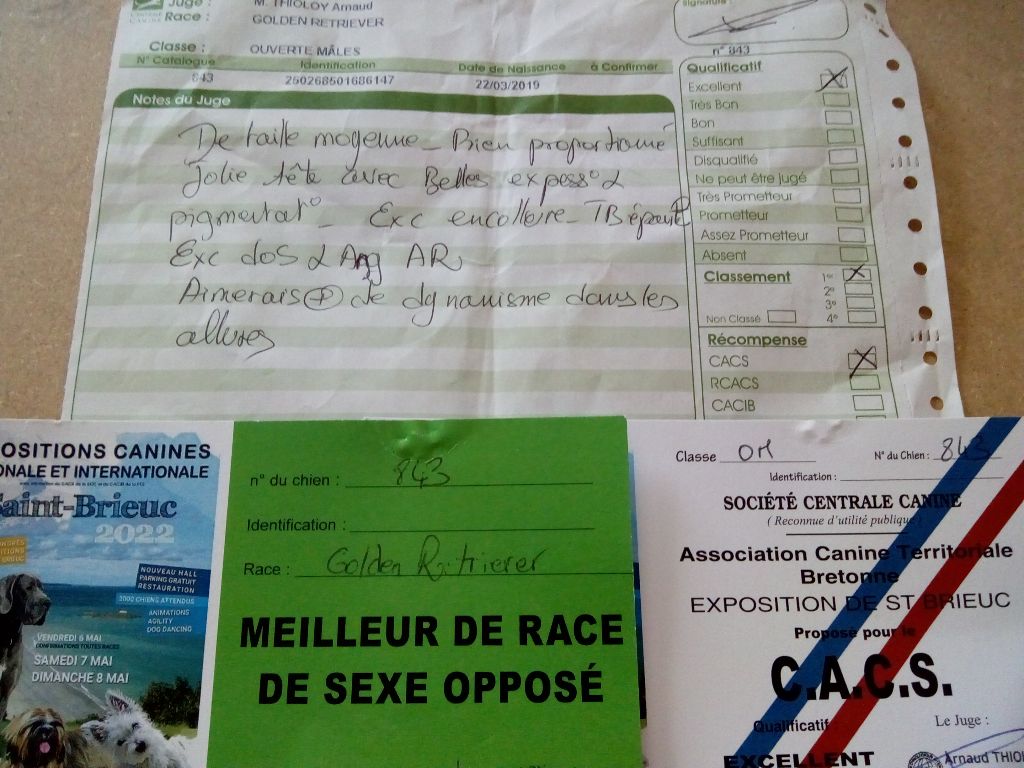 Juge : M. THIOLOY Arnaud
Race : GOLDEN RETRIEVER
Classe : OUVERTE MÂLES
N° Catalogue Identification Date de Naissance à Confirmer
843 250268501686147 22/03/2019
Notes du Juge
De taille moyenne - Bien proportionné
Jolie tête avec Belles express° &
pigmentat° - Exc encolure - TB épaule
Exc dos & Ang AR
Aimerais + de dynamisme dans les
allures
signature :
n° 843
Qualificatif
Excellent
Très Bon
Bon
Suffisant
Disqualifié
Ne peut être jugé
Très Prometteur
Prometteur
Assez Prometteur
Absent
Classement 1er
2e
3e
Non Classé 4e
Récompense
CACS
RCACS
CACIB
OSITIONS CANINES
ONALE ET INTERNATIONALE
Saint-Brieuc
2022
NOUVEAU HALL
PARKING GRATUIT
RESTAURATION
3000 CHIENS ATTENDUS
ANIMATIONS
AGILITY
DOG DANCING
VENDREDI 6 MAI
CONFIRMATIONS TOUTES RACES
SAMEDI 7 MAI
DIMANCHE 8 MAI
n° du chien : 843
Identification :
Race : Golden Retriever
MEILLEUR DE RACE
DE SEXE OPPOSÉ
Classe OM N° du Chien : 843
Identification :
SOCIÉTÉ CENTRALE CANINE
( Reconnue d'utilité publique )
Association Canine Territoriale
Bretonne
EXPOSITION DE ST BRIEUC
Proposé pour le
C.A.C.S.
Qualificatif Le Juge :
EXCELLENT Arnaud THIOL